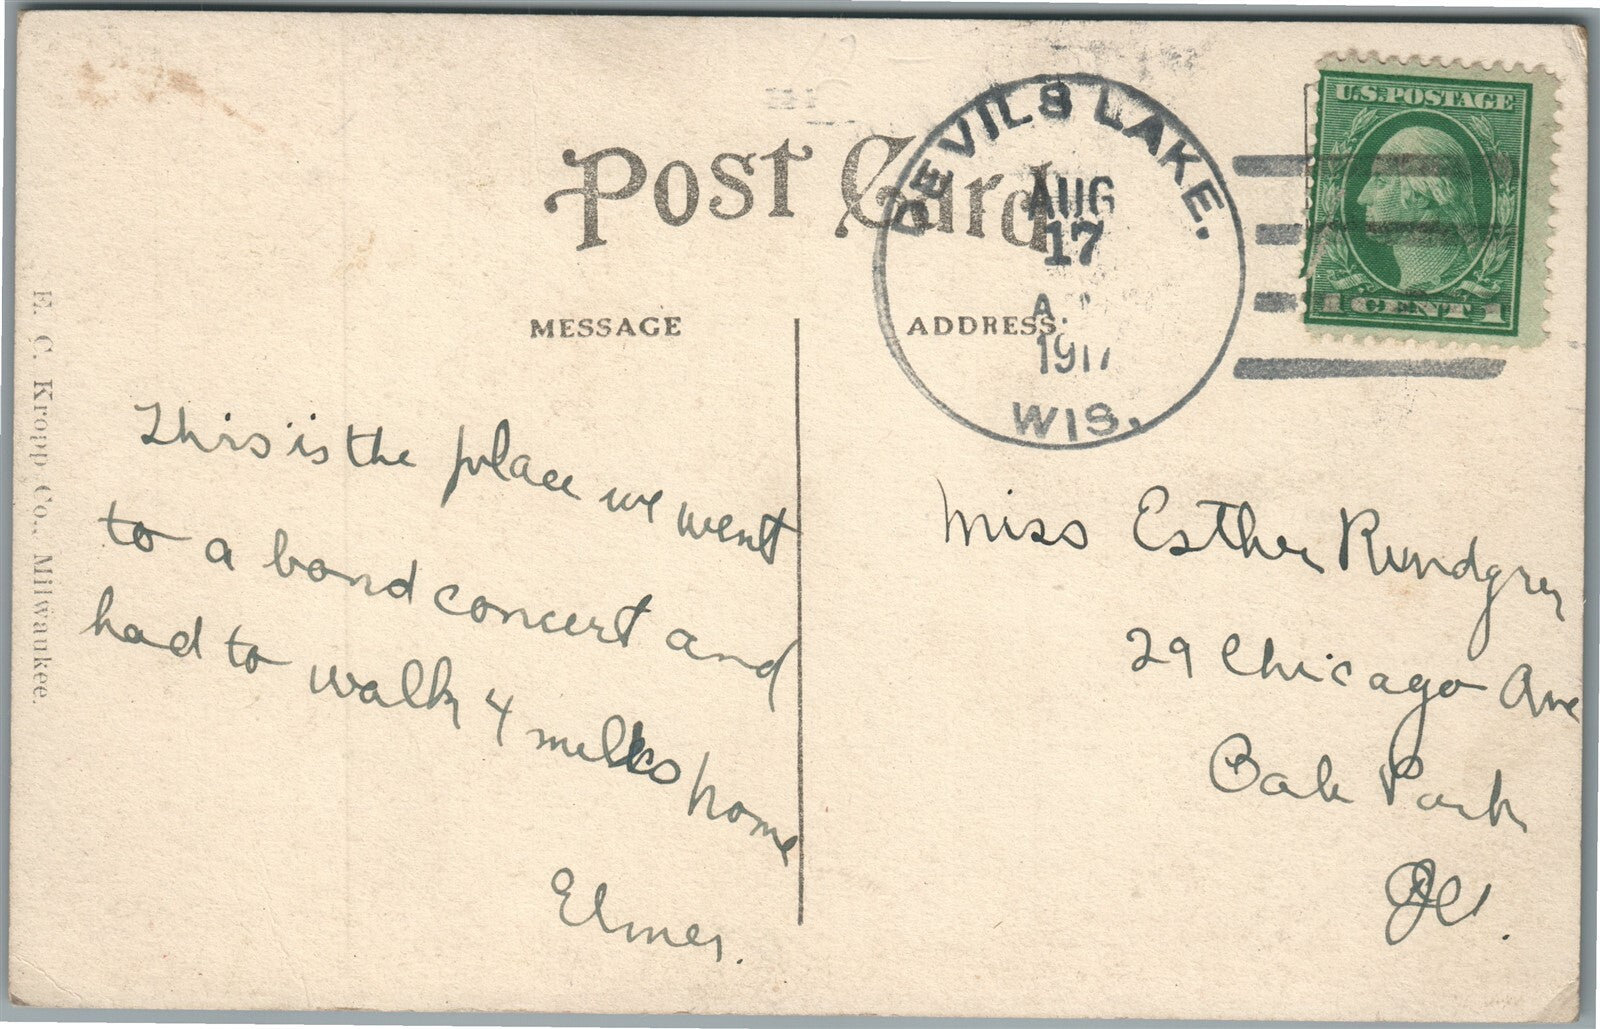 Post Card
MESSAGE
ADDRESS
DEVILS LAKE.
AUG
17
A.
1917
WIS.
U.S. POSTAGE
1 CENT 1
E. C. Kropp Co., Milwaukee.
This is the place we went
to a band concert and
had to walk 4 miles home
Elmer.
Miss Esther Rundgren
29 Chicago Ave
Oak Park
Ill.